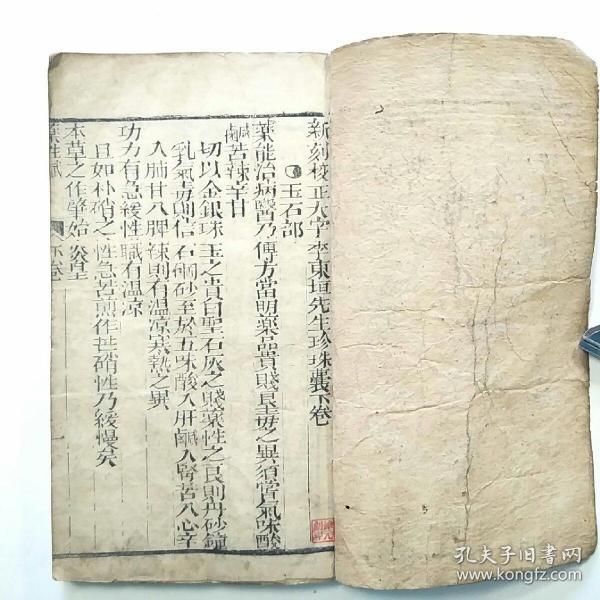 新刻校正大字李東垣先生珍珠囊下卷
玉石部
藥能治病醫乃傳方當明藥品貴賤良毒之異須嘗氣味酸
鹹苦辣辛甘
切以金銀珠玉之貴自聖石灰之賤藥性之良則丹砂鐘
乳氣毒則信石硇砂至於五味酸入肝鹹入腎苦入心辛
入肺甘入脾辣則有溫凉寒熱之異
功力有急緩性職有溫凉
且如朴硝之性急苦煎作芒硝性乃緩慢矣
本草之作肇始炎皇
藥性賦 下卷
孔夫子旧书网
www.kongfz.com